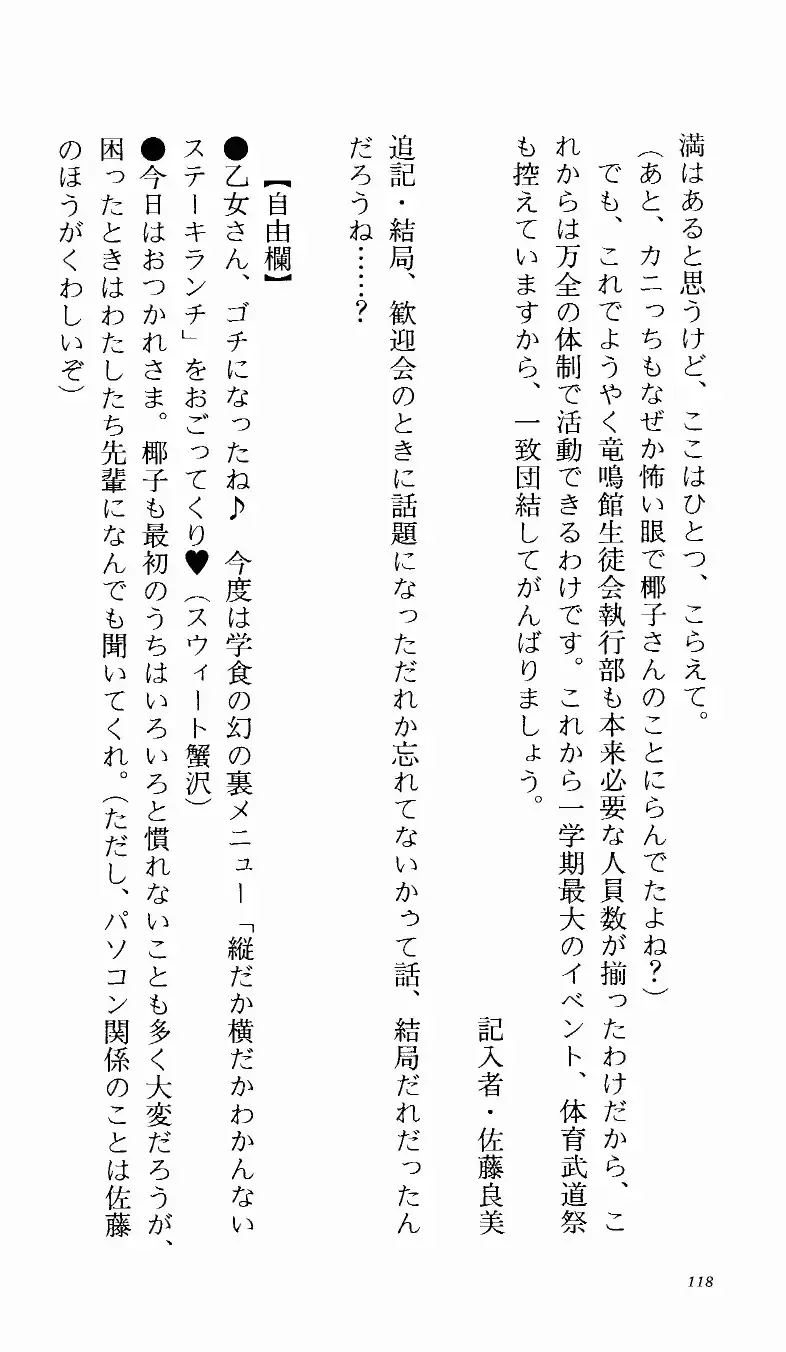 満はあると思うけど、ここはひとつ、こらえて。
（あと、カニっちもなぜか怖い眼で椰子さんのことにらんでたよね？）
　でも、これでようやく竜鳴館生徒会執行部も本来必要な人員数が揃ったわけだから、こ
れからは万全の体制で活動できるわけです。これから一学期最大のイベント、体育武道祭
も控えていますから、一致団結してがんばりましょう。
記入者・佐藤良美
追記・結局、歓迎会のときに話題になっただれか忘れてないかって話、結局だれだったん
だろうね……？
【自由欄】
●乙女さん、ゴチになったね♪　今度は学食の幻の裏メニュー「縦だか横だかわかんない
ステーキランチ」をおごってくり♥（スウィート蟹沢）
●今日はおつかれさま。椰子も最初のうちはいろいろと慣れないことも多く大変だろうが、
困ったときはわたしたち先輩になんでも聞いてくれ。（ただし、パソコン関係のことは佐藤
のほうがくわしいぞ）
118